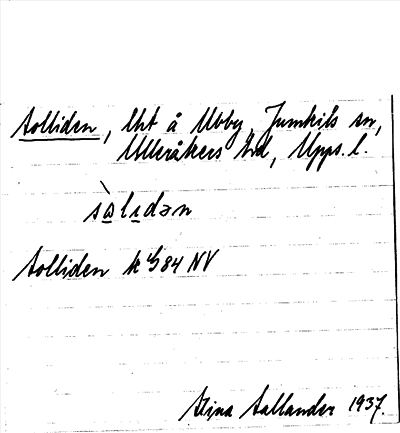 Solliden, lht å Ubby, Jumkils sn,
Ulleråkers hd, Upps. l.
sòlıdən
Solliden k G84 NV
Stina Sallander 1937.